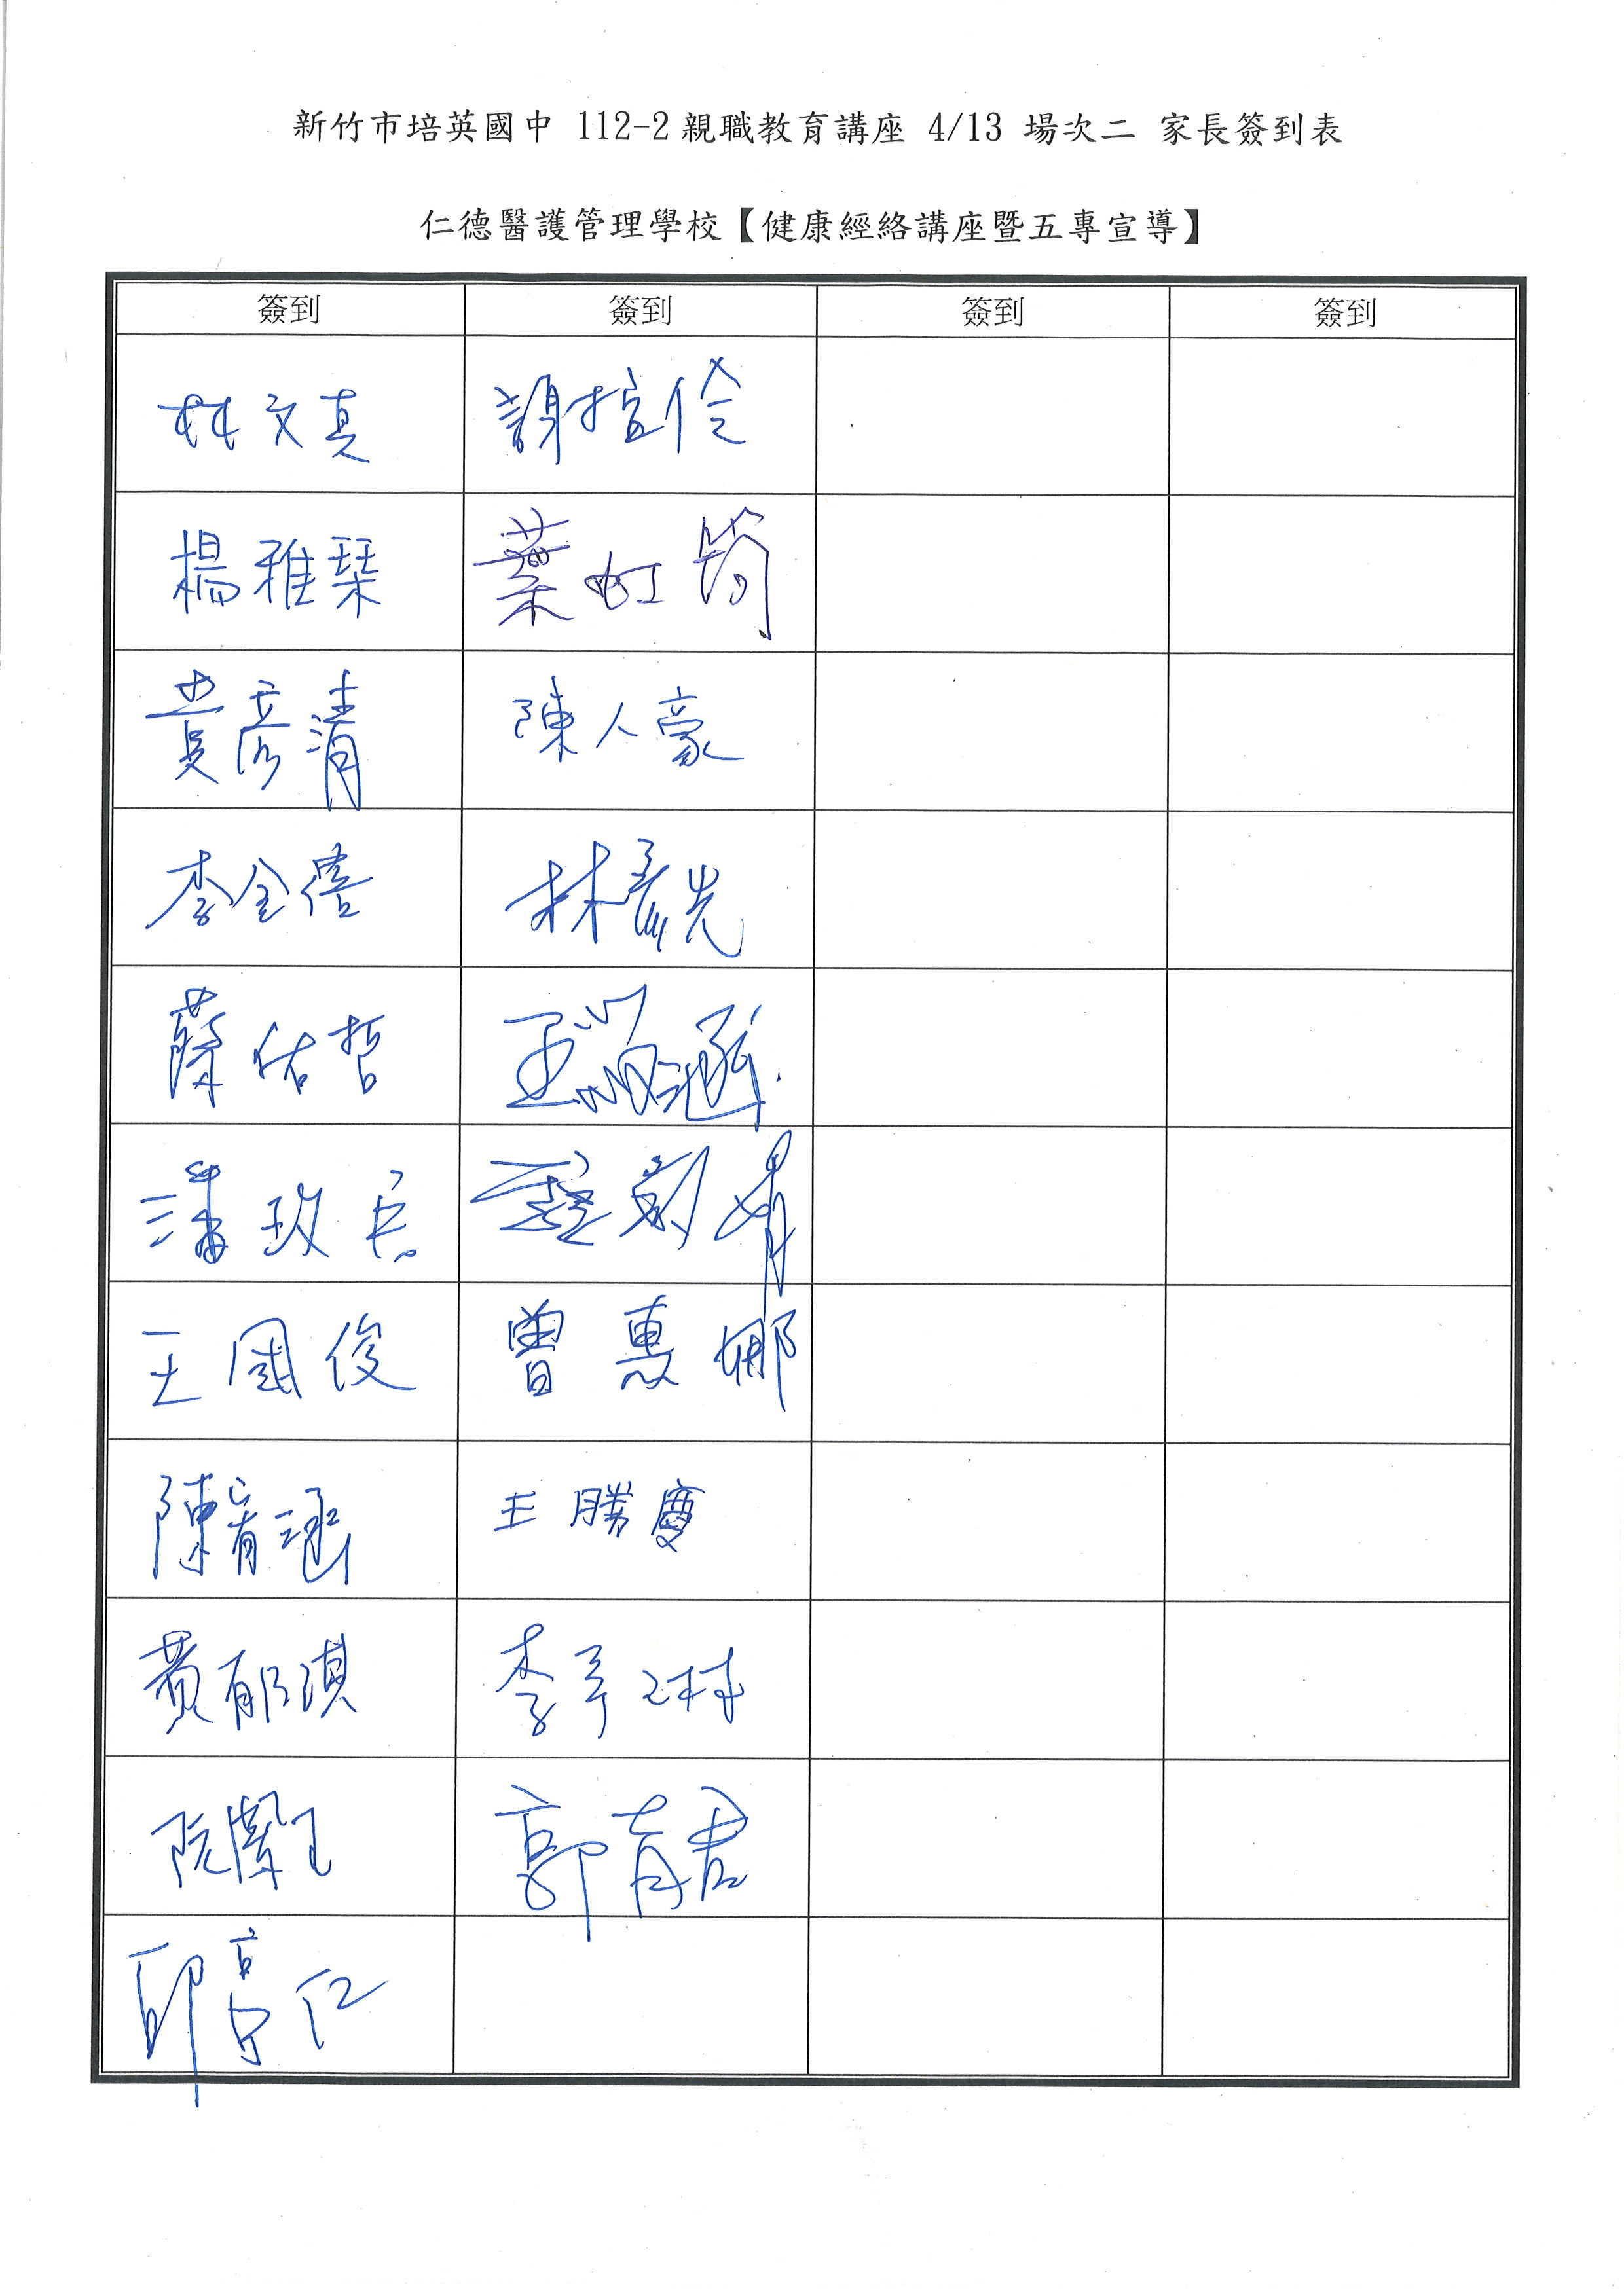 新竹市培英國中 112-2親職教育講座 4/13 場次二 家長簽到表
仁德醫護管理學校【健康經絡講座暨五專宣導】
簽到 簽到 簽到 簽到
林文真
楊雅琹 葉虹筠
黃彥清 陳人豪
李全僖 林彥光
蔡佑哲
潘玫
王國俊 曾惠娜
陳育涵 王勝慶
黃郁琪 李平琳
阮 玉 郭育君
邱亭仁